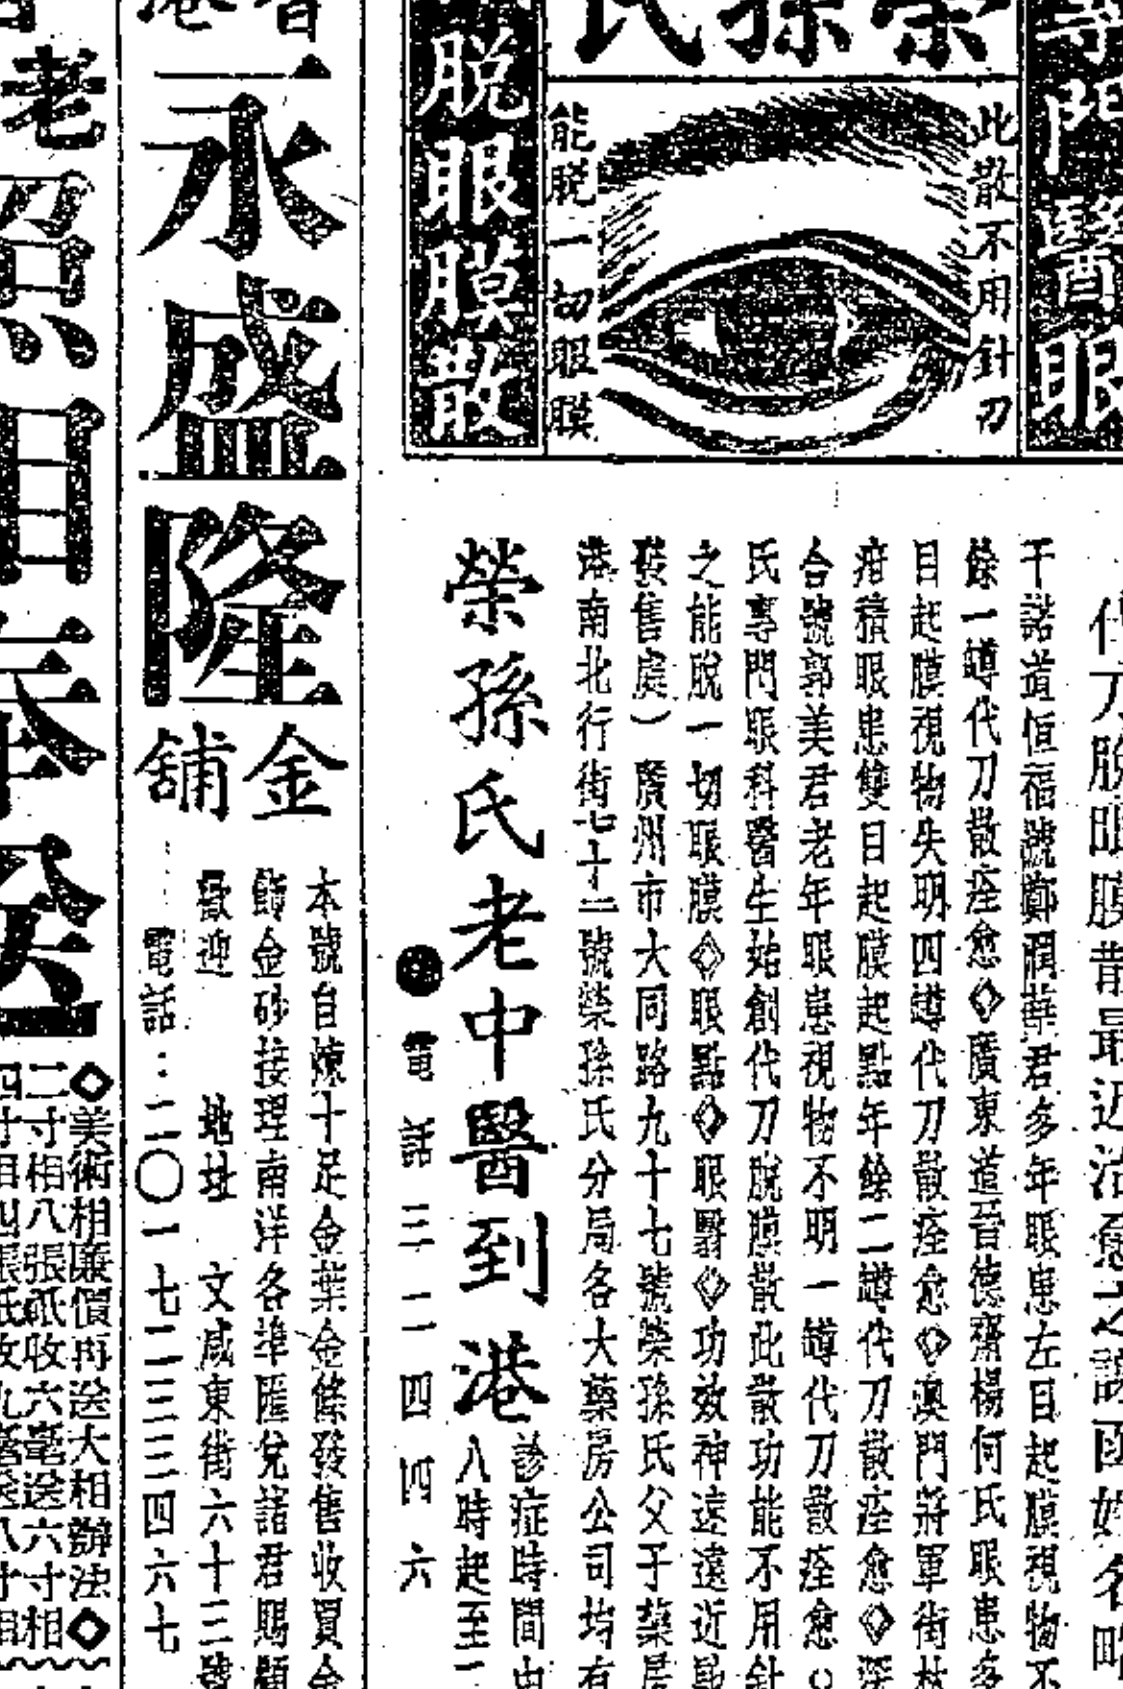 專門醫眼
榮孫氏
此散不用針刀
能脫一切眼膜
脫眼膜散
代刀脫眼膜散最近治愈之謝函姓名略
干諾道恒福號鄭潤華君多年眼患左目起膜視物不
餘一罇代刀散痊愈◇廣東道晉德齋楊何氏眼患多
目起膜視物失明四罇代刀散痊愈◇澳門蔣軍街林
疳積眼患雙目起膜起點年餘二罇代刀散痊愈◇深
合號郭美君老年眼患視物不明一罇代刀散痊愈
氏專門眼科醫生始創代刀脫膜散此散功能不用針
之能脫一切眼膜◇眼點◇眼翳◇功效神速遠近
發售處）廣州市大同路九十七號榮孫氏父子藥房
港南北行街七十二號榮孫氏分局各大藥房公司均有
榮孫氏老中醫到港
診症時間由
八時起至二
電話三二四四六
永盛隆
金舖
本號自煉十足金葉金條發售收買金
飾金砂接理南洋各埠匯兌諸君賜顧
歡迎 地址 文咸東街六十三號
電話：二〇一七二三三四六七
老照相
◇美術相廉價再送大相辦法◇
二寸相八張祇收六毫送六寸相
四寸相四張祇收九毫送八寸相